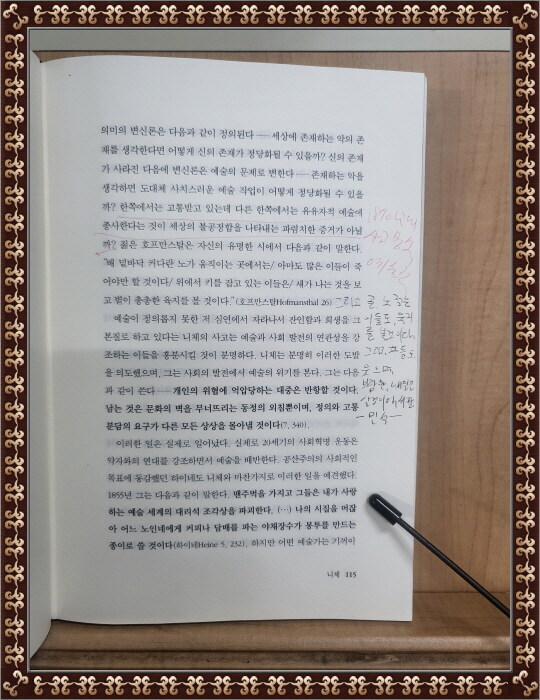 의미의 변신론은 다음과 같이 정의된다 ── 세상에 존재하는 악의 존
재를 생각한다면 어떻게 신의 존재가 정당화될 수 있을까? 신의 존재
가 사라진 다음에 변신론은 예술의 문제로 변한다 ── 존재하는 악을
생각하면 도대체 사치스러운 예술 작업이 어떻게 정당화될 수 있을
까? 한쪽에서는 고통받고 있는데 다른 한쪽에서는 유유자적 예술에
종사한다는 것이 세상의 불공정함을 나타내는 파렴치한 증거가 아닐
까? 젊은 호프만스탈은 자신의 유명한 시에서 다음과 같이 말한다.
"배 밑바닥 커다란 노가 움직이는 곳에서는/ 아마도 많은 이들이 죽
어야만 할 것이다/ 위에서 키를 잡고 있는 이들은/ 새가 나는 것을 보
고 별이 총총한 육지를 볼 것이다."(호프만스탈Hofmansthal 26) 그리고
예술이 정의롭지 못한 저 심연에서 자라나서 잔인함과 희생을 그
본질로 하고 있다는 니체의 사고는 예술과 사회 발전의 연관성을 강
조하는 이들을 흥분시킬 것이 분명하다. 니체는 분명히 이러한 도발
을 의도했으며, 그는 사회의 발전에서 예술의 위기를 본다. 그는 다음
과 같이 쓴다 ── 개인의 위협에 억압당하는 대중은 반항할 것이다.
남는 것은 문화의 벽을 무너뜨리는 동정의 외침뿐이며, 정의와 고통
분담의 요구가 다른 모든 상상을 몰아낼 것이다(7, 340).
이러한 일은 실제로 일어났다. 실제로 20세기의 사회혁명 운동은
약자와의 연대를 강조하면서 예술을 배반한다. 공산주의의 사회적인
목표에 동감했던 하이네도 니체와 마찬가지로 이러한 일을 예견했다.
1855년 그는 다음과 같이 말한다. 맨주먹을 가지고 그들은 내가 사랑
하는 예술 세계의 대리석 조각상을 파괴한다. (…) 나의 시집을 머잖
아 어느 노인네에게 커피나 담배를 파는 야채장수가 봉투를 만드는
종이로 쓸 것이다(하이네Heine 5, 232). 하지만 어떤 예술가는 기꺼이
니체 115